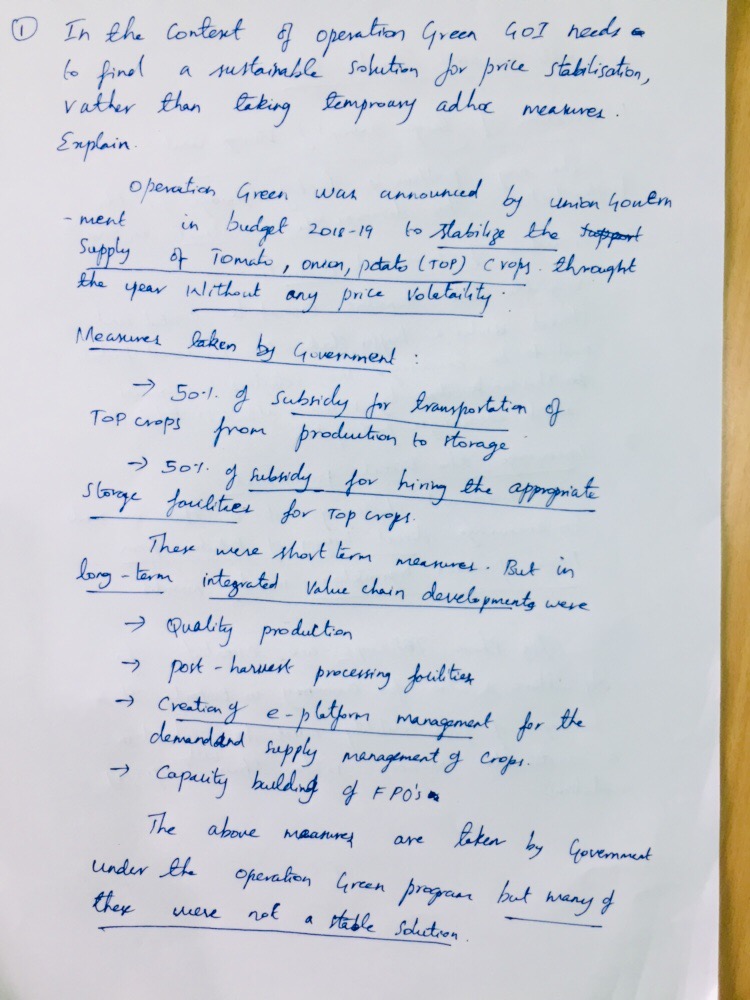 ① In the Context of operation Green GOI needs
to find a sustainable solution for price stabilisation,
rather than taking temproary adhoc measures.
Explain.
Operation Green was announced by union Govern
-ment in budget 2018-19 to stabilize the support
Supply of Tomato, onion, potato (TOP) Crops. throught
the year without any price volatality.
Measures taken by Government :
→ 50% of subsidy for transportation of
TOP crops from production to storage
→ 50% of subsidy for hiring the appropriate
storage facilities for TOP crops.
These were short term measures. But in
long-term integrated value chain developments were
→ Quality production
→ post-harvest processing facilities
→ Creation of e-platform management for the
demand and supply management of crops.
→ Capacity building of FPO's
The above measures are taken by Government
under the operation Green program but many of
these were not a stable solution.